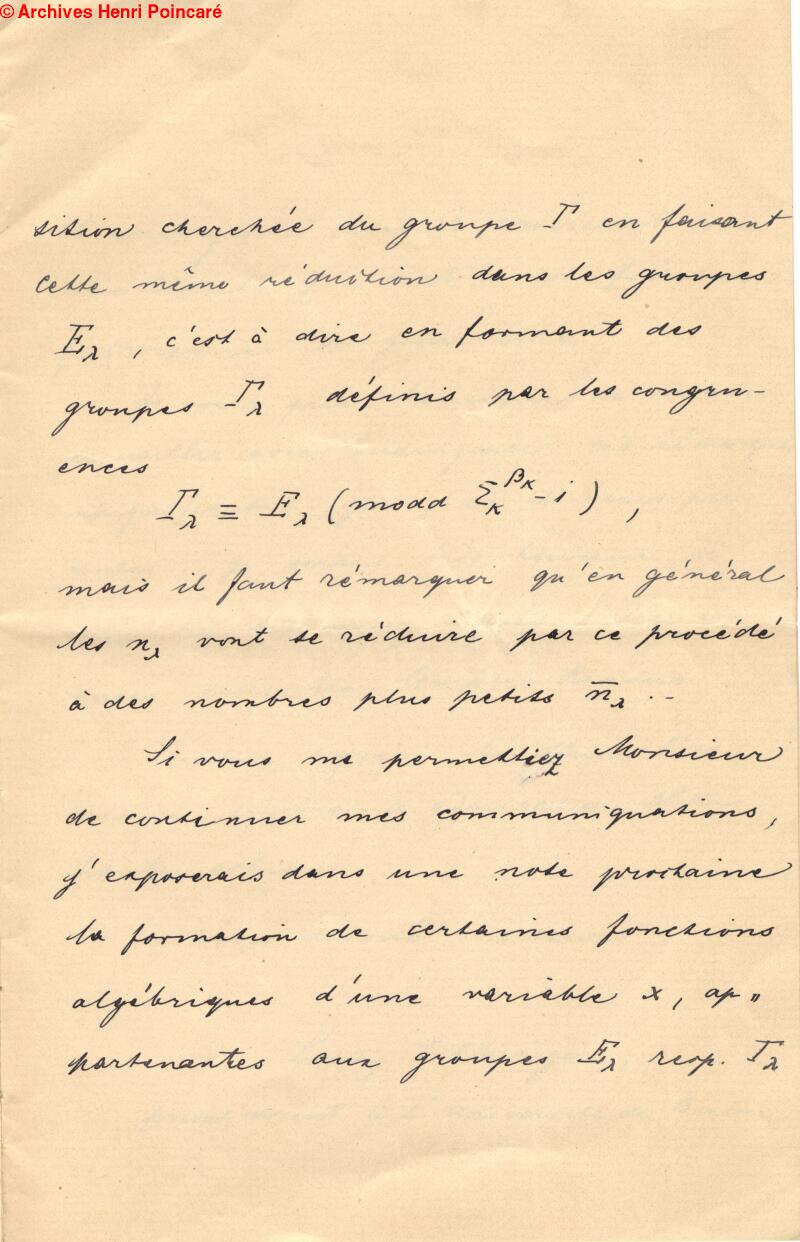 © Archives Henri Poincaré
sition cherchée du groupe Γ en faisant
cette même réduction dans les groupes
E_λ, c'est à dire en formant des
groupes Γ_λ définis par les congru-
ences
Γ_λ ≡ E_λ (modd Σ_κ^{β_κ} - i),
mais il faut rémarquer qu'en général
les n_λ vont se réduire par ce procédé
à des nombres plus petits n̅_λ. -
Si vous me permettiez Monsieur
de continuer mes communiquations,
j'exposerais dans une note prochaine
la formation de certaines fonctions
algébriques d'une variable x, ap„
partenantes aux groupes E_λ resp. Γ_λ